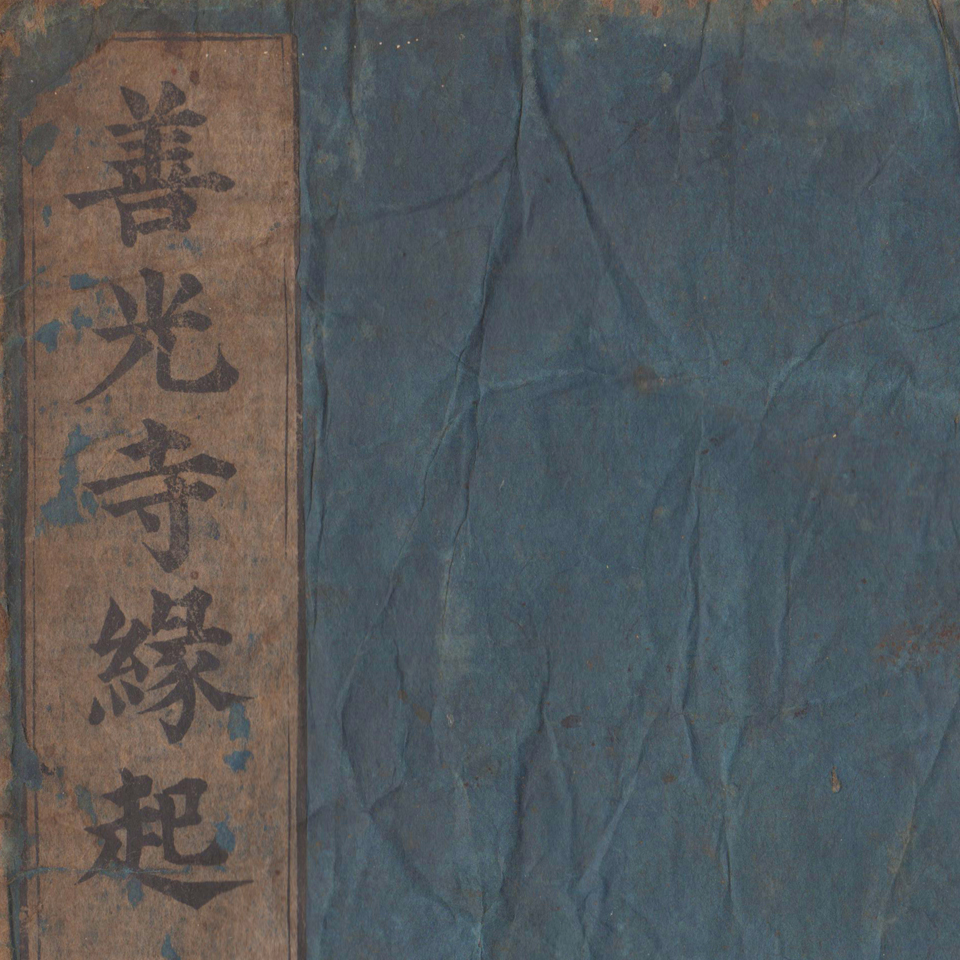 善光寺縁起